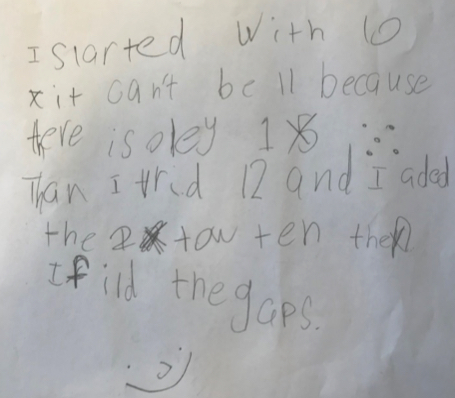 I started with 10
x it can't be 11 because
there is oley 1
Than I trid 12 and I aded
the 2 tow ten then
I fild the gaps.